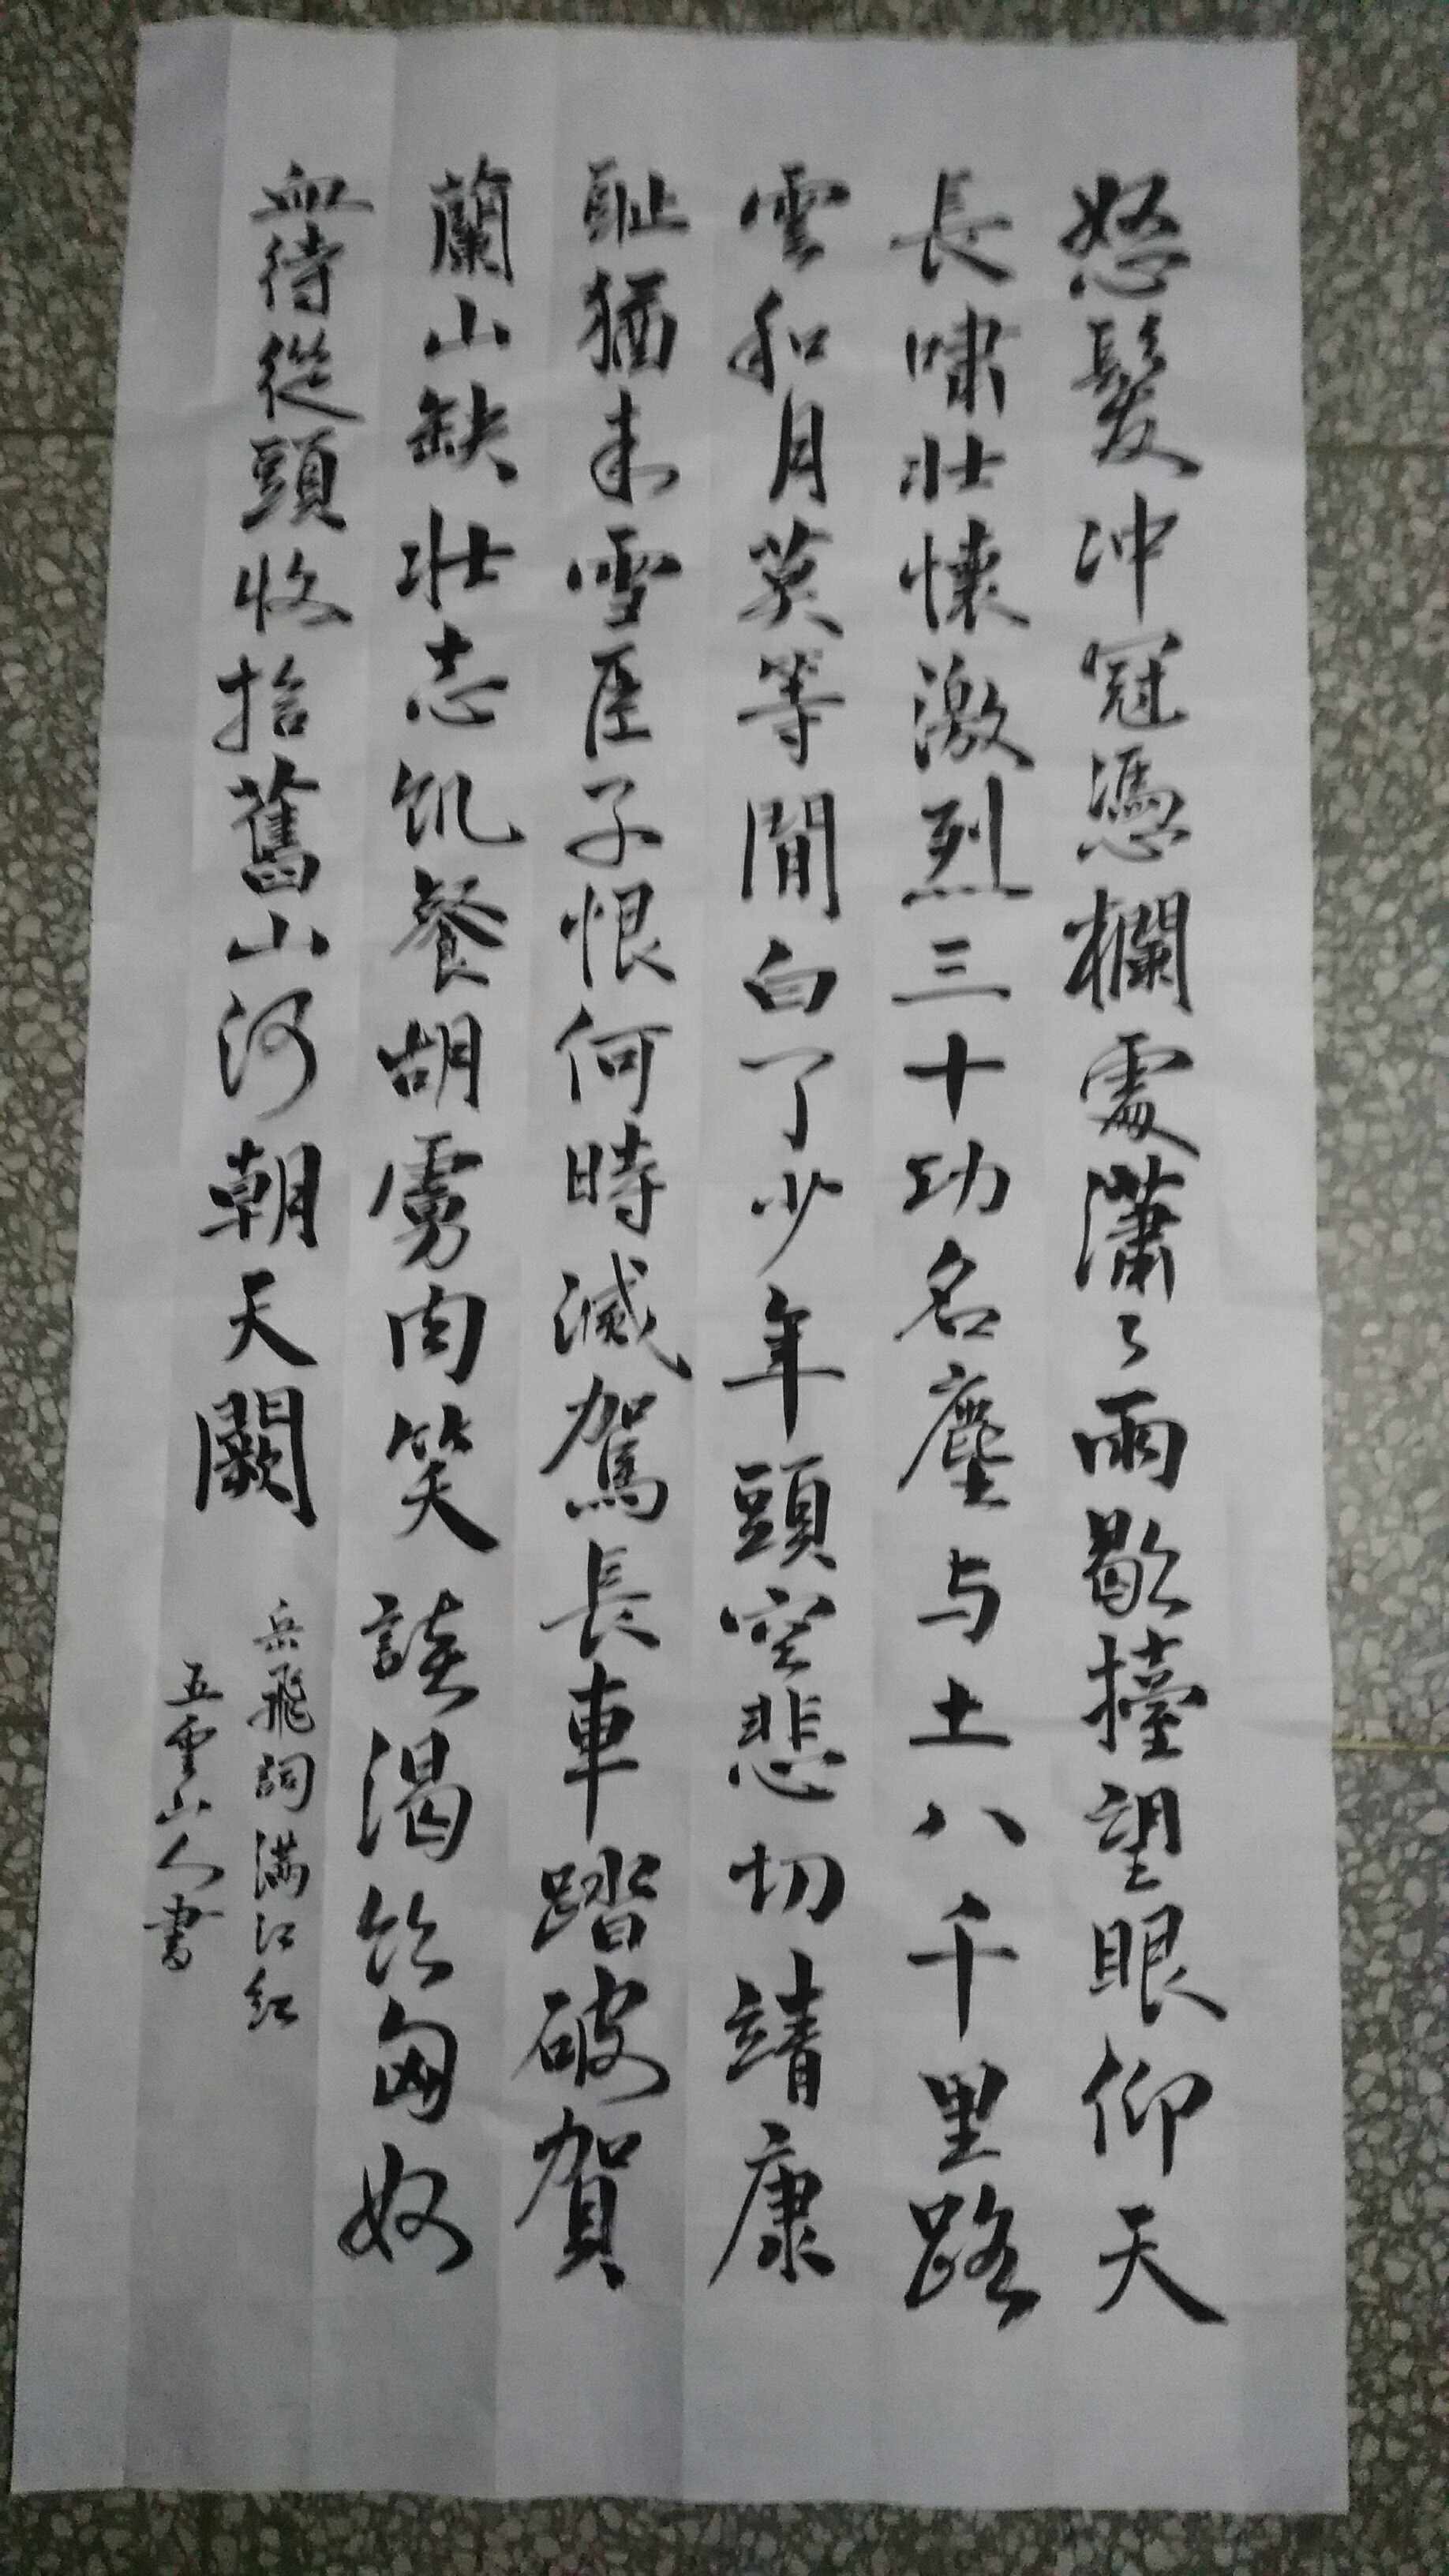 怒髮冲冠憑欄處瀟々雨歇擡望眼仰天
長嘯壯懷激烈三十功名塵与土八千里路
雲和月莫等閒白了少年頭空悲切靖康
耻猶未雪臣子恨何時滅駕長車踏破賀
蘭山缺壮志飢餐胡虜肉笑談渴飲匈奴
血待從頭收拾舊山河朝天闕
岳飛詞滿江紅
五雲山人書